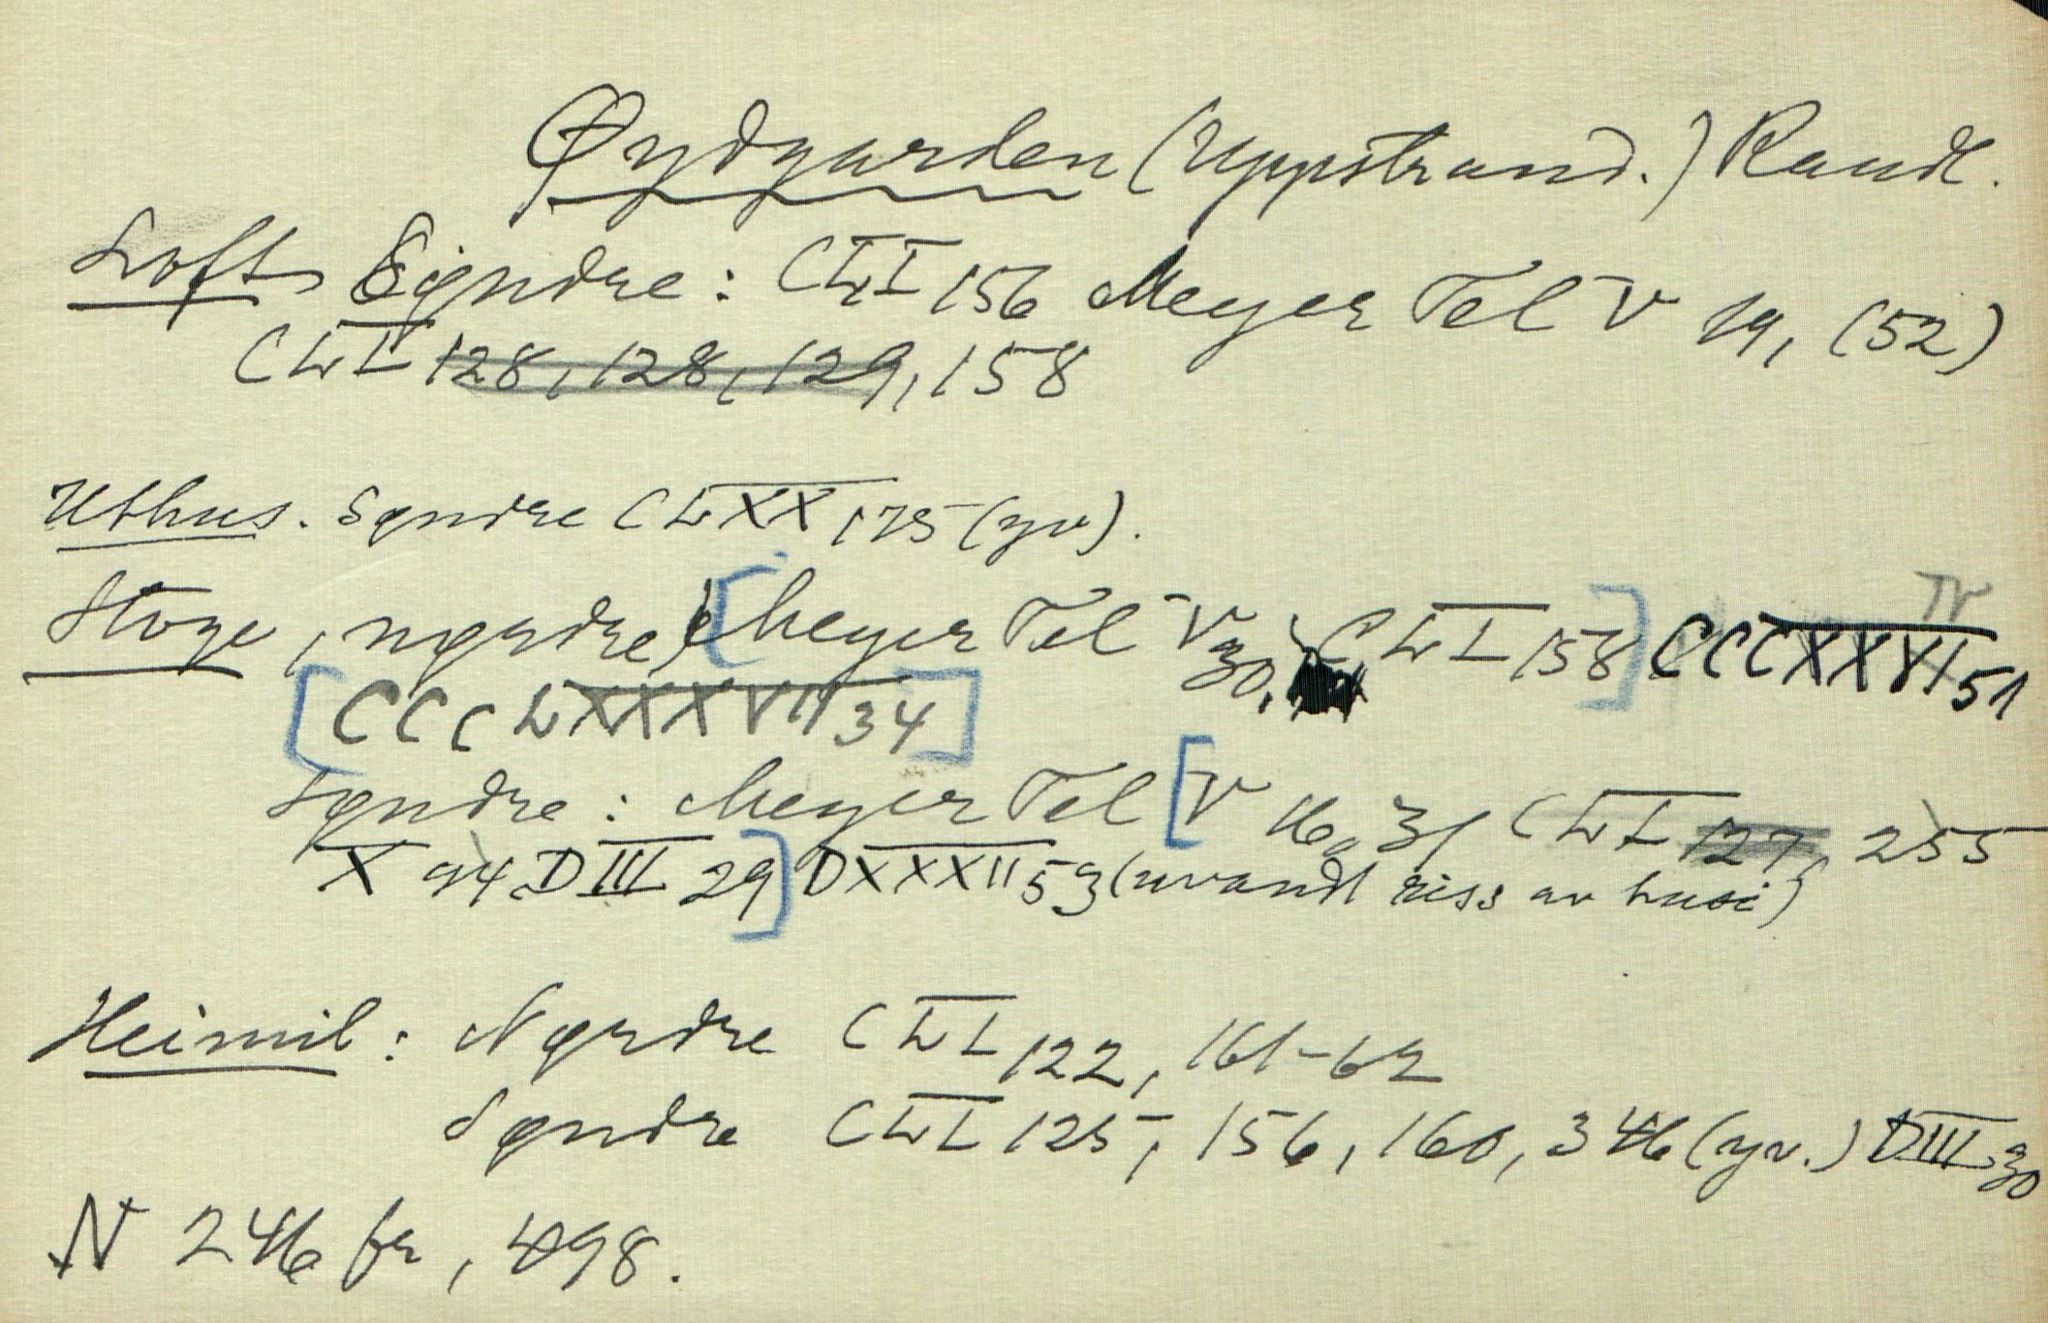 Øydgarden (Uppstrand.) Raudl.
Loft, Søndre: CLI 156 Meyer Tel V 19, (52)
CLI 128, 128, 129, 158
Uthus. Søndre CLXX 175 (yv).
Stoge, nørdre, [Meyer Tel V 30, CLI 158] CCCXXVI 51
IV
[CCCLXXXVII 34]
Søndre: Meyer Tel [V 16, 31 CLI 127, 255
X 94 DIII 29] DXXXII 53 (uvandl riss av huse)
Heimil: Nørdre CLI 122, 161-62
Søndre CLI 125, 156, 160, 346 (yv.) DIII 30
N 246 fr, 498.